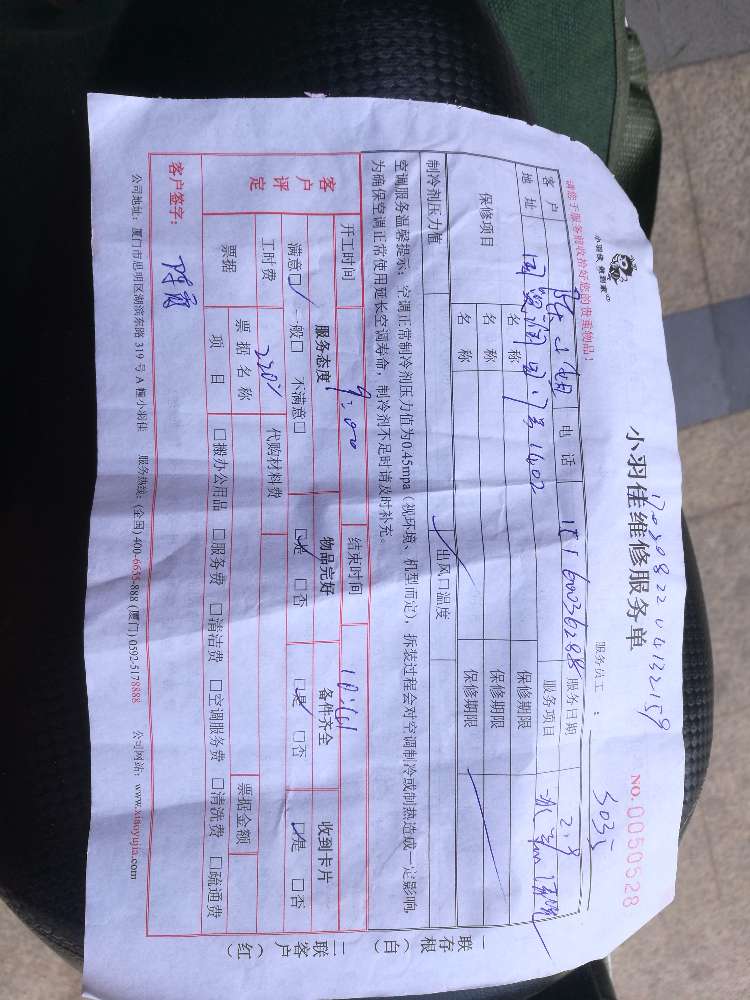 小羽佳 做到家
小羽佳维修服务单
NO.0050528
请您于服务前收拾好您的贵重物品!
服务员工：
客户
电话
服务日期 2.8
地址
服务项目
保修项目
名称
保修期限
名称
保修期限
名称
保修期限
制冷剂压力值
出风口温度
空调服务温馨提示：空调正常制冷剂压力值为0.45mpa（视环境、机型而定），拆装过程会对空调制冷或制热造成一定影响，
为确保空调正常使用延长空调寿命，制冷剂不足时请及时补充。
开工时间 9:00
结束时间
客户评定
服务态度
物品完好
备件齐全
收到卡片
满意□ 一般□ 不满意□
□是 □否
□是 □否
□是 □否
工时费
代购材料费
票据
票据名称
票据金额
项目
□搬办公用品 □服务费 □清洁费 □空调服务费 □清洗费 □疏通费
客户签字：
公司地址：厦门市思明区湖滨东路 319 号 A 幢小羽佳 服务热线：(全国) 400-6655-888 (厦门) 0592-5178888 公司网站：www.xiaoyujia.com
一联存根（白）
二联客户（红）